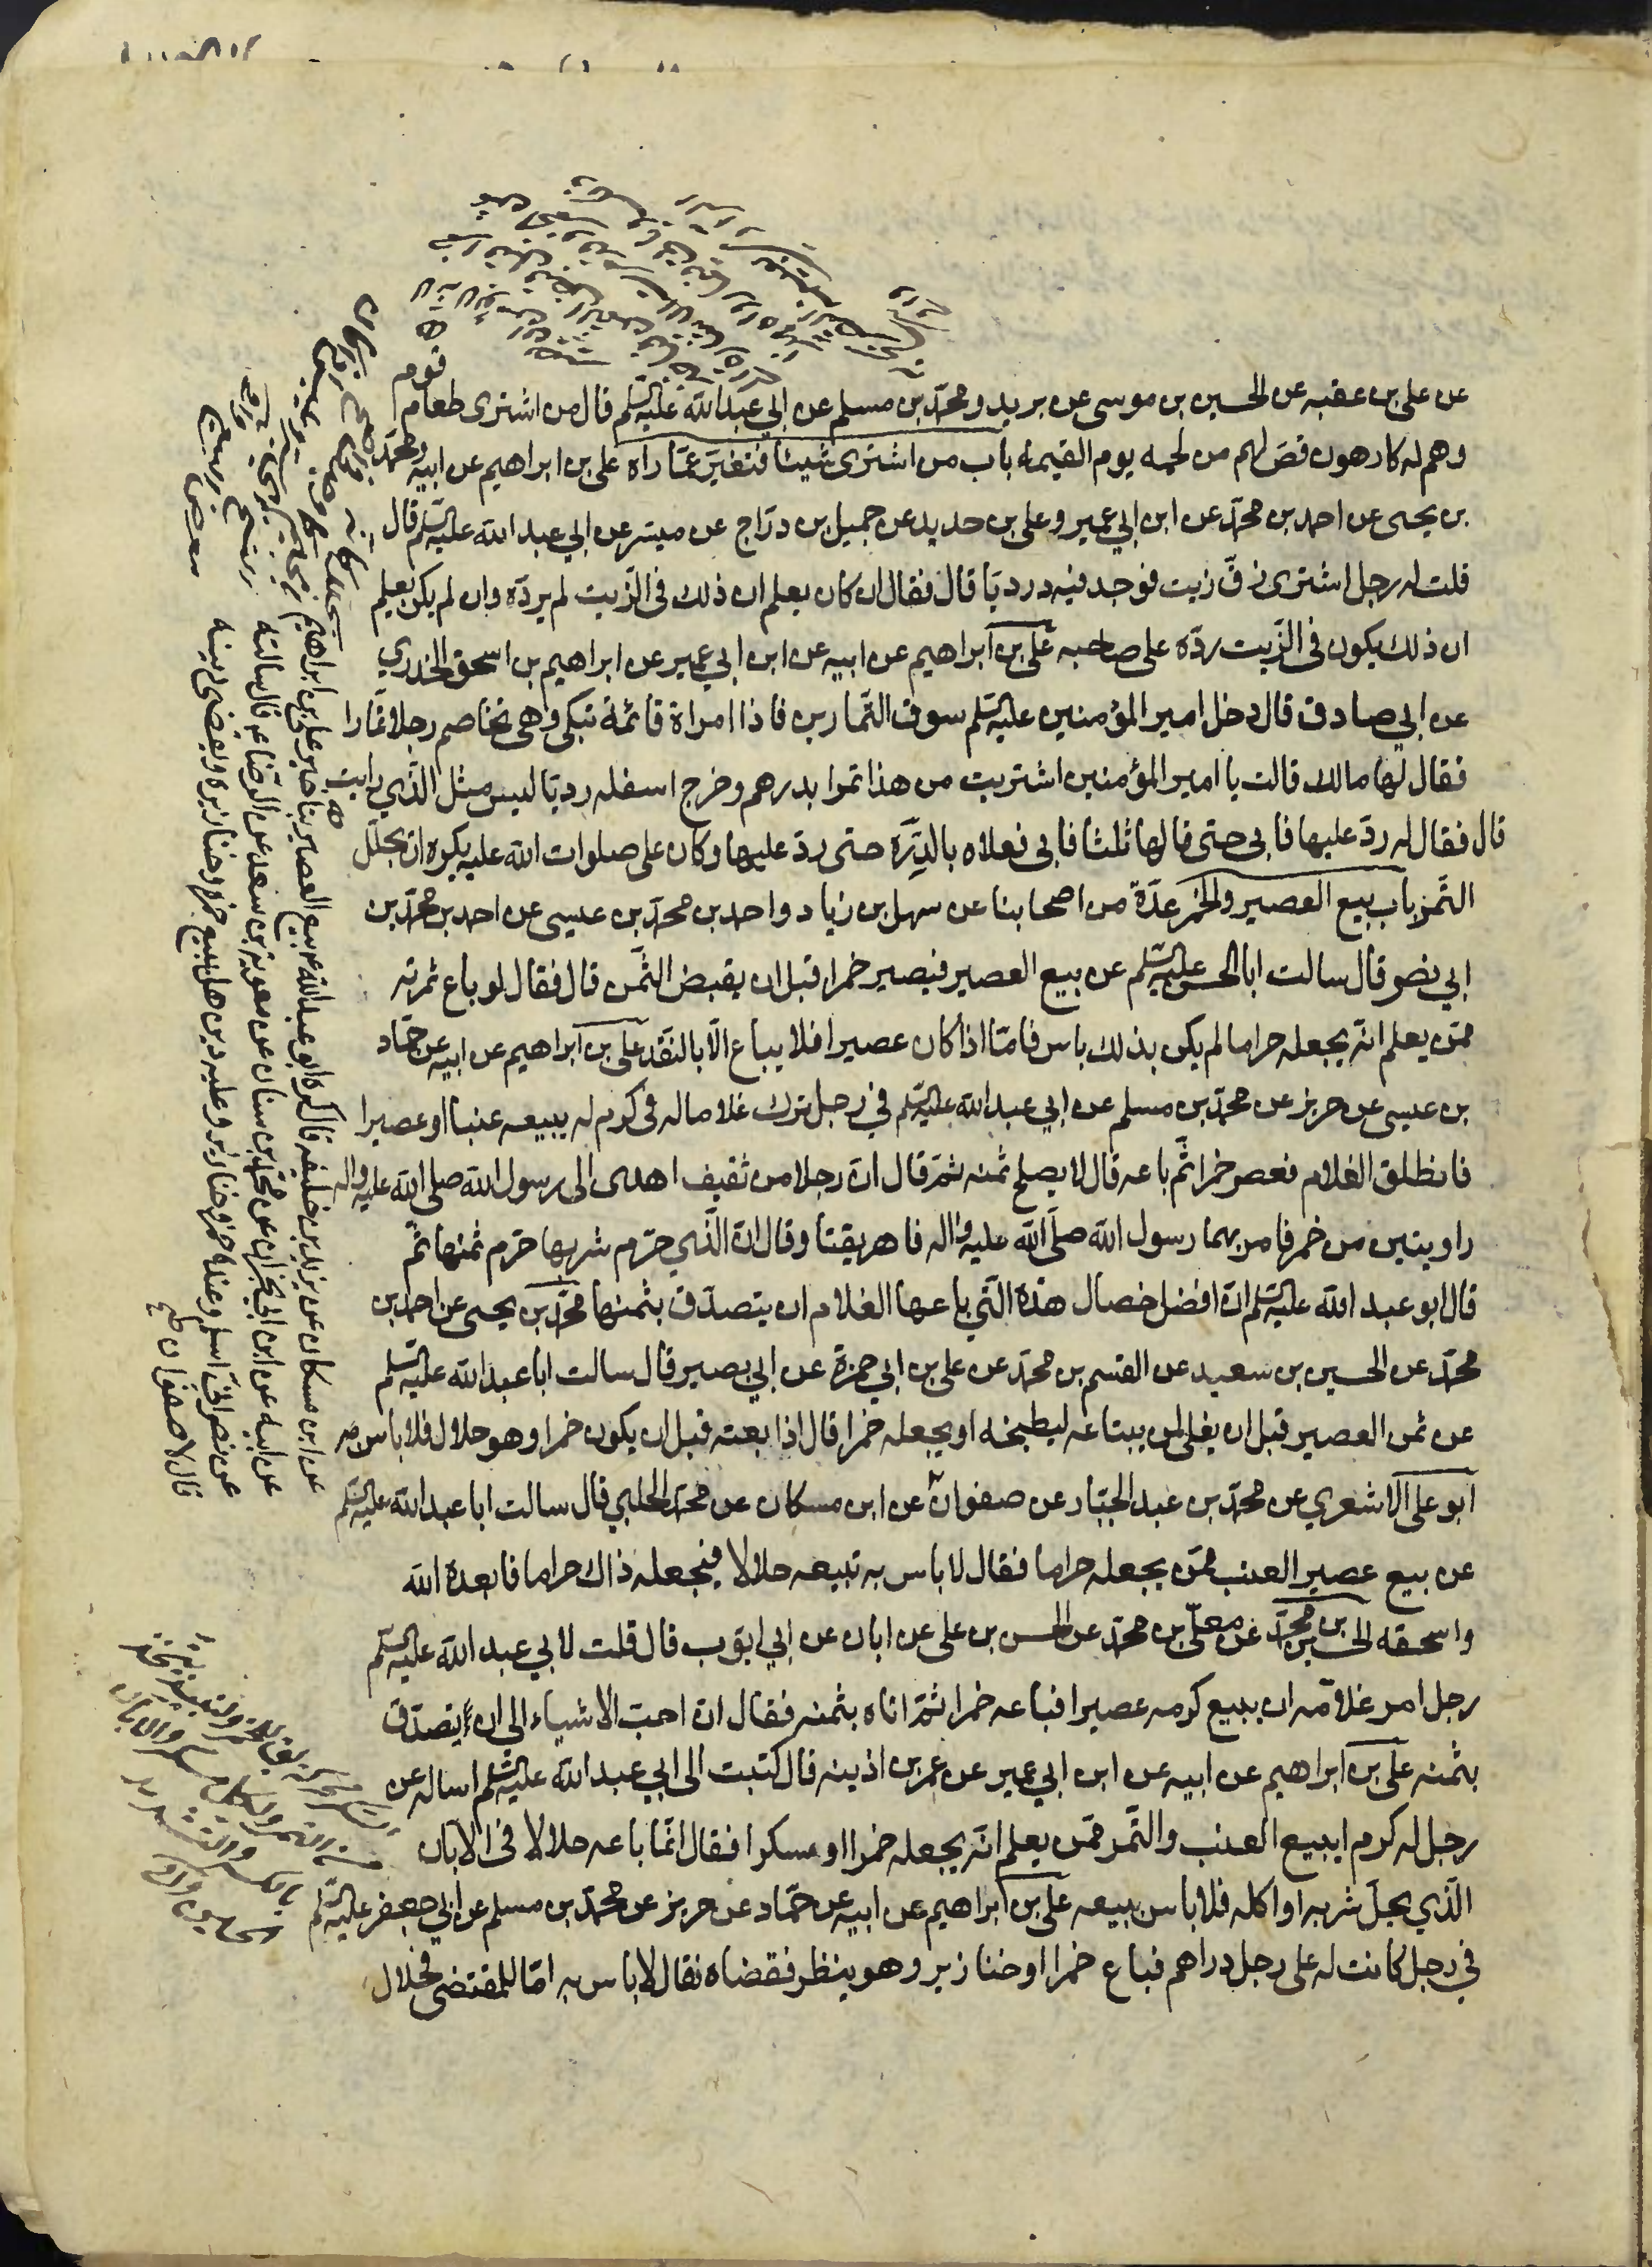 عن على بن عقبه عن الحسين بن موسى عن بريد ومحمد بن مسلم عن ابي عبد الله عليه السلم قال من اشترى طعام قوم
وهم له كارهون قص لهم من لحمه يوم القيمة باب من اشترى شيئا فتغير عما راه على بن ابراهيم عن ابيه ومحمد
بن يحيى عن احمد بن محمد عن ابن ابي عمير وعلى بن حديد عن جميل بن دراج عن ميسر عن ابي عبد الله عليه السلم قال
قلت له رجل اشترى زق زيت فوجد فيه درديا قال فقال ان كان يعلم ان ذلك فى الزيت لم يرده وان لم يكن يعلم
ان ذلك يكون فى الزيت رده على صاحبه على بن ابراهيم عن ابيه عن ابن ابي عمير عن ابراهيم بن اسحق الخدري
عن ابي صادق قال دخل امير المؤمنين عليه السلم سوق التمارين فاذا امراة قائمة تبكى وهى تخاصم رجلا تمارا
فقال لها مالك قالت يا امير المؤمنين اشتريت من هذا تمرا بدرهم وخرج اسفله رديا ليس مثل الذي رايت
قال فقال له رد عليها فابى حتى قالها ثلثا فابى فعلاه بالدرة حتى رد عليها وكان على صلوات الله عليه يكره ان يجلل
التمر باب بيع العصير والخمر عدة من اصحابنا عن سهل بن زياد واحمد بن محمد بن عيسى عن احمد بن محمد بن
ابي نصر قال سالت ابا الحسن عليه السلم عن بيع العصير فيصير خمرا قبل ان يقبض الثمن قال فقال لو باع ثمرته
ممن يعلم انه يجعله حراما لم يكن بذلك باس فاما اذا كان عصيرا فلا يباع الا بالنقد على بن ابراهيم عن ابيه عن حماد
بن عيسى عن حريز عن محمد بن مسلم عن ابي عبد الله عليه السلم في رجل ترك غلاما له فى كرم له يبيعه عنبا او عصيرا
فانطلق الغلام فعصر خمرا ثم باعه قال لا يصلح ثمنه ثم قال ان رجلا من ثقيف اهدى الى رسول الله صلى الله عليه واله
راويتين من خمر فامر بهما رسول الله صلى الله عليه واله فاهريقتا وقال ان الذي حرم شربها حرم ثمنها ثم
قال ابو عبد الله عليه السلم ان افضل خصال هذه التي باعها الغلام ان يتصدق بثمنها محمد بن يحيى عن احمد بن
محمد عن الحسين بن سعيد عن القسم بن محمد عن على بن ابي حمزة عن ابي بصير قال سالت ابا عبد الله عليه السلم
عن ثمن العصير قبل ان يغلى لمن يبتاعه ليطبخه او يجعله خمرا قال اذا بعته قبل ان يكون خمرا وهو حلال فلا باس به
ابو على الاشعري عن محمد بن عبد الجبار عن صفوان عن ابن مسكان عن محمد الحلبي قال سالت ابا عبد الله عليه السلم
عن بيع عصير العنب ممن يجعله حراما فقال لا باس به تبيعه حلالا فيجعله ذاك حراما فابعده الله
واسحقه الحسين بن محمد عن معلى بن محمد عن الحسن بن على عن ابان عن ابي ايوب قال قلت لابي عبد الله عليه السلم
رجل امر غلامه ان يبيع كرمه عصيرا فباعه خمرا ثم اتاه بثمنه فقال ان احب الاشياء الى ان يتصدق
بثمنه على بن ابراهيم عن ابيه عن ابن ابي عمير عن عمر بن اذينه قال كتبت الى ابي عبد الله عليه السلم اساله عن
رجل له كرم ايبيع العنب والتمر ممن يعلم انه يجعله خمرا او مسكرا فقال انما باعه حلالا فى الابان
الذي يحل شربه او اكله فلا باس ببيعه على بن ابراهيم عن ابيه عن حماد عن حريز عن محمد بن مسلم عن ابي جعفر عليه السلم
في رجل كانت له على رجل دراهم فباع خمرا او خنازير وهو ينظر فقضاه فقال لا باس به اما للمقتضى فحلال
عن ابن مسكان عن يزيد بن خليفه قال كره ابو عبد الله ع بيع العصير بتاخير على بن ابراهيم
عن ابيه عن ابن ابي نجران عن محمد بن سنان عن معوية بن سعد عن الرضا ع قال سالته
عن نصراني اسلم وعنده خمر وخنازير وعليه دين هل يبيع خمره وخنازيره ويقضى دينه
قال لا صفوان صح